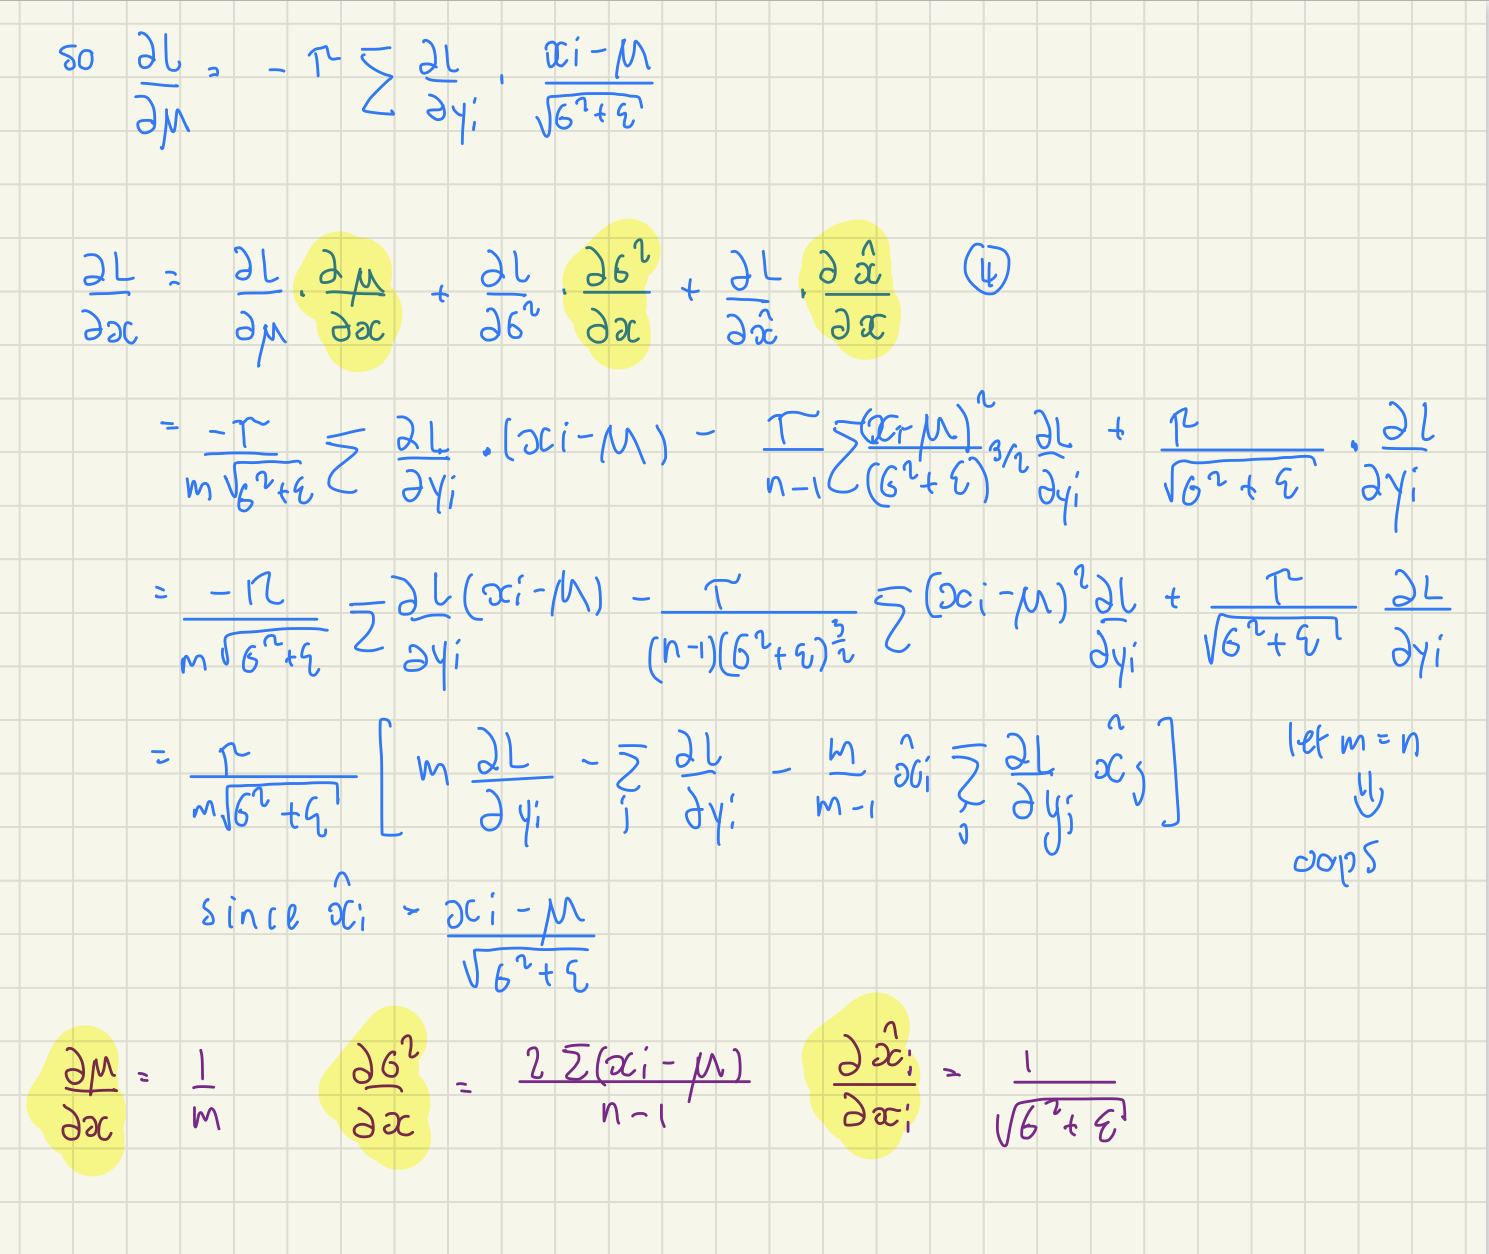 so ∂L/∂μ = - r Σ ∂L/∂yi · (xi - μ)/√(σ² + ε)
∂L/∂x = ∂L/∂μ · ∂μ/∂x + ∂L/∂σ² · ∂σ²/∂x + ∂L/∂x̂ · ∂x̂/∂x ④
= -r/(m√(σ²+ε)) Σ ∂L/∂yi · (xi - μ) - r/(n-1) Σ (xi-μ)²/(σ²+ε)^3/2 ∂L/∂yi + r/√(σ² + ε) · ∂L/∂yi
= -r/(m√(σ²+ε)) Σ ∂L/∂yi (xi - μ) - r/((n-1)(σ²+ε)^3/2) Σ (xi - μ)² ∂L/∂yi + r/√(σ²+ε) ∂L/∂yi
= r/(m√(σ²+ε)) [ m ∂L/∂yi - Σj ∂L/∂yi - m/(m-1) x̂i Σj ∂L/∂yj x̂j ] let m = n
⇓
oops
since x̂i = (xi - μ)/√(σ²+ε)
∂μ/∂x = 1/m ∂σ²/∂x = 2 Σ(xi - μ)/(n-1) ∂x̂i/∂xi = 1/√(σ²+ε)